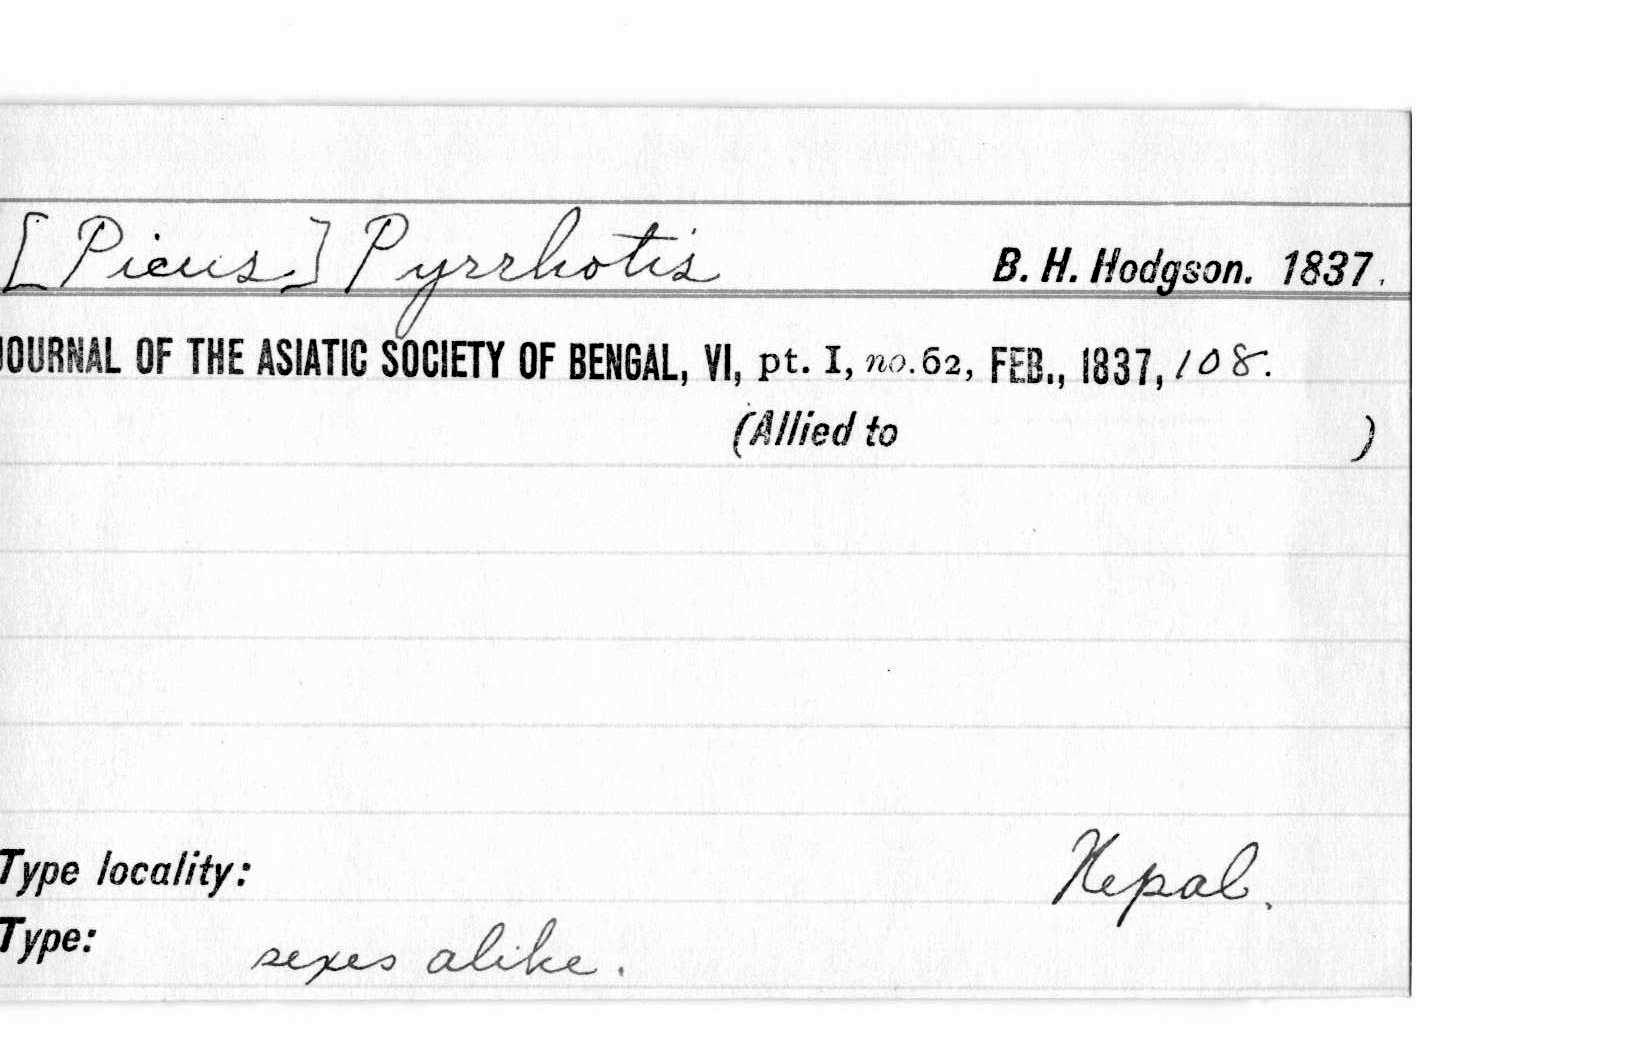 [Picus] Pyrrhotis B. H. Hodgson. 1837.
JOURNAL OF THE ASIATIC SOCIETY OF BENGAL, VI, pt. I, no.62, FEB., 1837, 108.
(Allied to )
Type locality: Nepal.
Type: sexes alike.